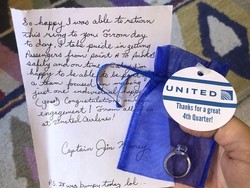 So happy I was able to return
this ring to you. From day
to day, I take pride in getting
Passengers from point A to point B
safely and on time
happy to be able to be part of
a team
just one
Congratulations on
engagement! From all
at United Airlines!
Captain Jim
P.S. It was bumpy today lol...
UNITED
Thanks for a great
4th Quarter!